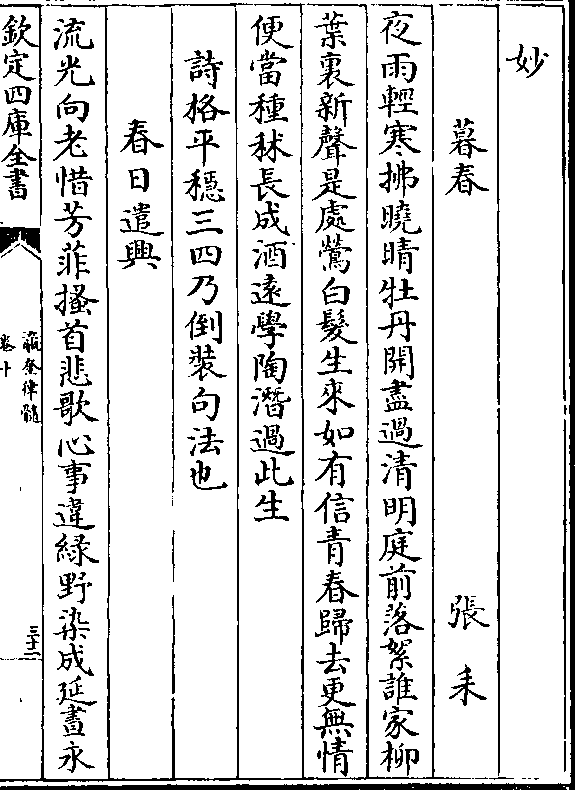 妙
暮春　張耒
夜雨輕寒拂曉晴牡丹開盡過清明庭前落絮誰家柳
葉裏新聲是處鶯白髮生來如有信青春歸去更無情
便當種秫長成酒遠學陶潛過此生
詩格平穩三四乃倒裝句法也
春日遣興
流光向老惜芳菲搔首悲歌心事違緑野染成延晝永
欽定四庫全書
瀛奎律髓
卷十
三十二